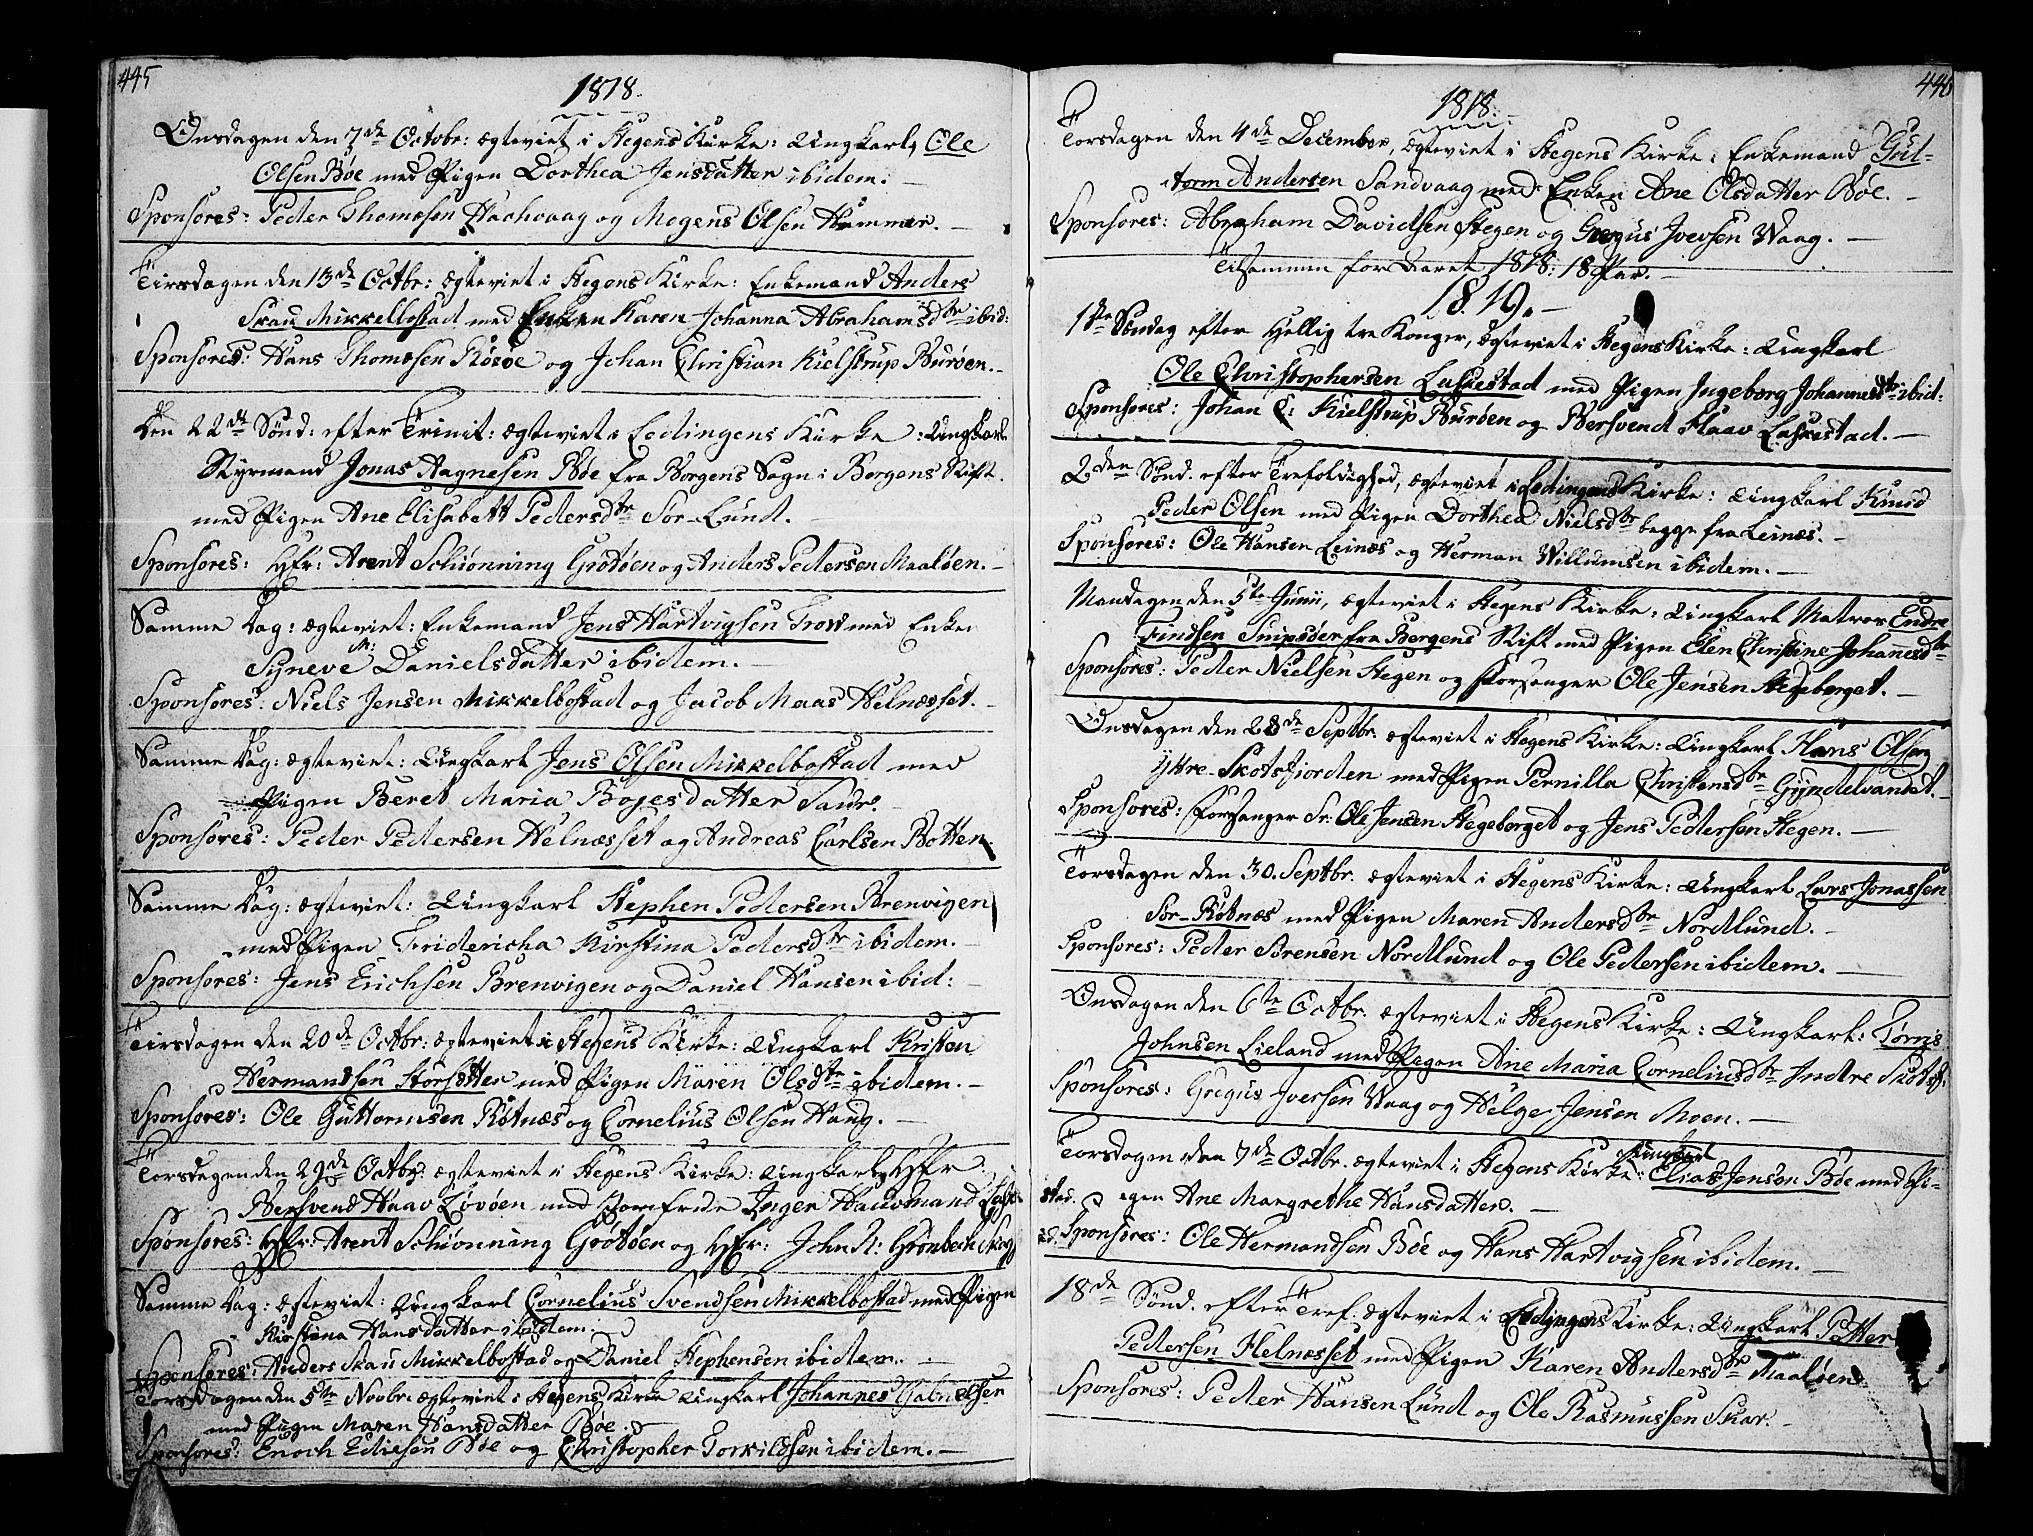 445
1818.
Onsdagen den 7de Octobr: ægteviet i Stegens Kirke: Ungkarl Ole
Olsen Bøe med Pigen Dorthea Jensdatter ibidem. —
Sponsores: Peder Thomesen Hachvaag og Mogens Olsen Hammer. —
Tirsdagen den 13de Octbr: ægteviet i Stegens Kirke: Enkemand Anders
Skau Mikkelbostad med Enken Karen Johanna Abrahamsdtr ibid:
Sponsores: Hans Thomesen Røsøe og Johan Christian Kielstrup Burøen. —
Den 22de Sønd: efter Trinit: ægteviet i Lødingens Kirke: Ungkarl
Styrmand Jonas Aagnesen Bøe fra Borgens Sogn i Bergens Stift.
med Pigen Ane Elisabeth Pedersdtr Sør-Lund. —
Sponsores: Hfr: Arent Schiønning Grøtøen og Anders Pedersen Maaløen. —
Samme Dag: ægteviet: Enkemand Jens Hartvigsen Trow med Enke
Syneve M: Danielsdatter ibidem. —
Sponsores: Niels Jensen Mikkelbostad og Jacob Maas Helnæsset. —
Samme Dag: ægteviet: Ungkarl Jens Olsen Mikkelbostad med
Pigen Beret Maria Bojesdatter
Sponsores: Peder Pedersen Helnæsset og Andreas Carlsen Botten.
Samme Dag: ægteviet: Ungkarl Stephen Pedersen Brenvigen
med Pigen Fridericha Kirstina Pedersdtr ibidem. —
Sponsores: Jens Erichsen Brenvigen og Daniel Hansen ibid: —
Tirsdagen den 20de Octbr: ægteviet i Stegens Kirke: Ungkarl Kristen
Hermandsen Storsletten med Pigen Maren Olsdtr ibidem. —
Sponsores: Ole Guttormsen Røtnæs og Cornelius Olsen Haug. —
Torsdagen den 29de Octbr: ægteviet i Stegens Kirke: Ungkarl Hfr
Bersvend Haav Løvøen med Jomfrue Inger Hauvmand
Sponsores: Hfr: Arent Schiønning Grøtøen og Hfr: John N: Grønbech
Samme Dag: ægteviet: Ungkarl Cornelius Svendsen Mikkelbostad med Pigen
Kirstina Hansdatter ibidem.
Sponsores: Anders Skau Mikkelbostad og Daniel Stephensen ibidem. —
Torsdagen den 5te Novbr: ægteviet i Stegens Kirke Ungkarl Johannes Gabrielsen
med Pigen Maren Hansdatter Bøe. —
Sponsores: Enoch Ediesen Bøe og Christopher Torkildsen ibidem. —
446
1818.
Torsdagen den 4de December, ægteviet i Stegens Kirke: Enkemand Gut-
torm Andersen Sandvaag med Enken Ane Olsdatter Bøe. —
Sponsores: Abraham Davidsen Stegen og Gregus Iversen Waag. —
Tilsammen for Aaret 1818: 18 Par. —
1819. —
1ste Søndag efter Hellig tre Konger, ægteviet i Stegens Kirke: Ungkarl
Ole Christophersen Laskestad med Pigen Ingeborg Johannesdtr ibid:
Sponsores: Johan C: Kielstrup Burøen og Bersvend Haav Laskestad. —
2den Sønd. efter Trefoldighed, ægteviet i Lødingens Kirke: Ungkarl Knud
Peder Olsen med Pigen Dorthea Nielsdtr begge fra Leinæs. —
Sponsores: Ole Hansen Leinæs og Herman Willumsen ibidem. —
Mandagen den 5te Junii, ægteviet i Stegens Kirke: Ungkarl Matros Endre
Findsen Snipsøer fra Bergens Stift med Pigen Elen Christine Johanesdtr
Sponsores: Peder Nielsen Stegen og Forsanger Ole Jensen Stegeberget. —
Onsdagen den 28de Septbr. ægteviet i Stegens Kirke: Ungkarl Hans Olsen
Yttre-Skotsfjorden med Pigen Pernilla Christensdtr Gyndelvandet. —
Sponsores: Forsanger Sr. Ole Jensen Stegeberget og Jens Pedersen Stegen. —
Torsdagen den 30. Septbr. ægteviet i Stegens Kirke: Ungkarl Lars Jonassen
Sør-Røtnæs med Pigen Maren Andersdtr Nordlund. —
Sponsores: Peder Sørensen Nordlund og Ole Pedersen ibidem. —
Onsdagen den 6te Octbr. ægteviet i Stegens Kirke: Ungkarl: Tørris
Johnsen Lieland med Pigen Ane Maria Corneliusdtr Indre Skotsf:
Sponsores: Gregus Iversen Waag og Helge Jensen Moen. —
Torsdagen den 7de Octbr. ægteviet i Stegens Kirke: Ungkarl Elias Jensen Bøe med Pi-
gen Ane Margrethe Hansdatter. —
Sponsores: Ole Hermandsen Bøe og Hans Hartvigsen ibidem. —
18de Sønd. efter Tref. ægteviet i Lødingens Kirke: Ungkarl Petter
Pedersen Helnæsset med Pigen Karen Andersdtr Maaløen
Sponsores: Peder Hansen Lund og Ole Rasmussen Skar. —